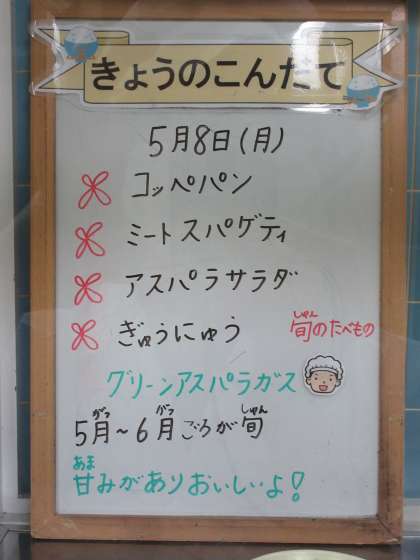 きょうのこんだて
5月8日(月)
コッペパン
ミートスパゲティ
アスパラサラダ
ぎゅうにゅう
しゅん
旬のたべもの
グリーンアスパラガス
がつ がつ しゅん
5月~6月ごろが旬
あま
甘みがありおいしいよ!